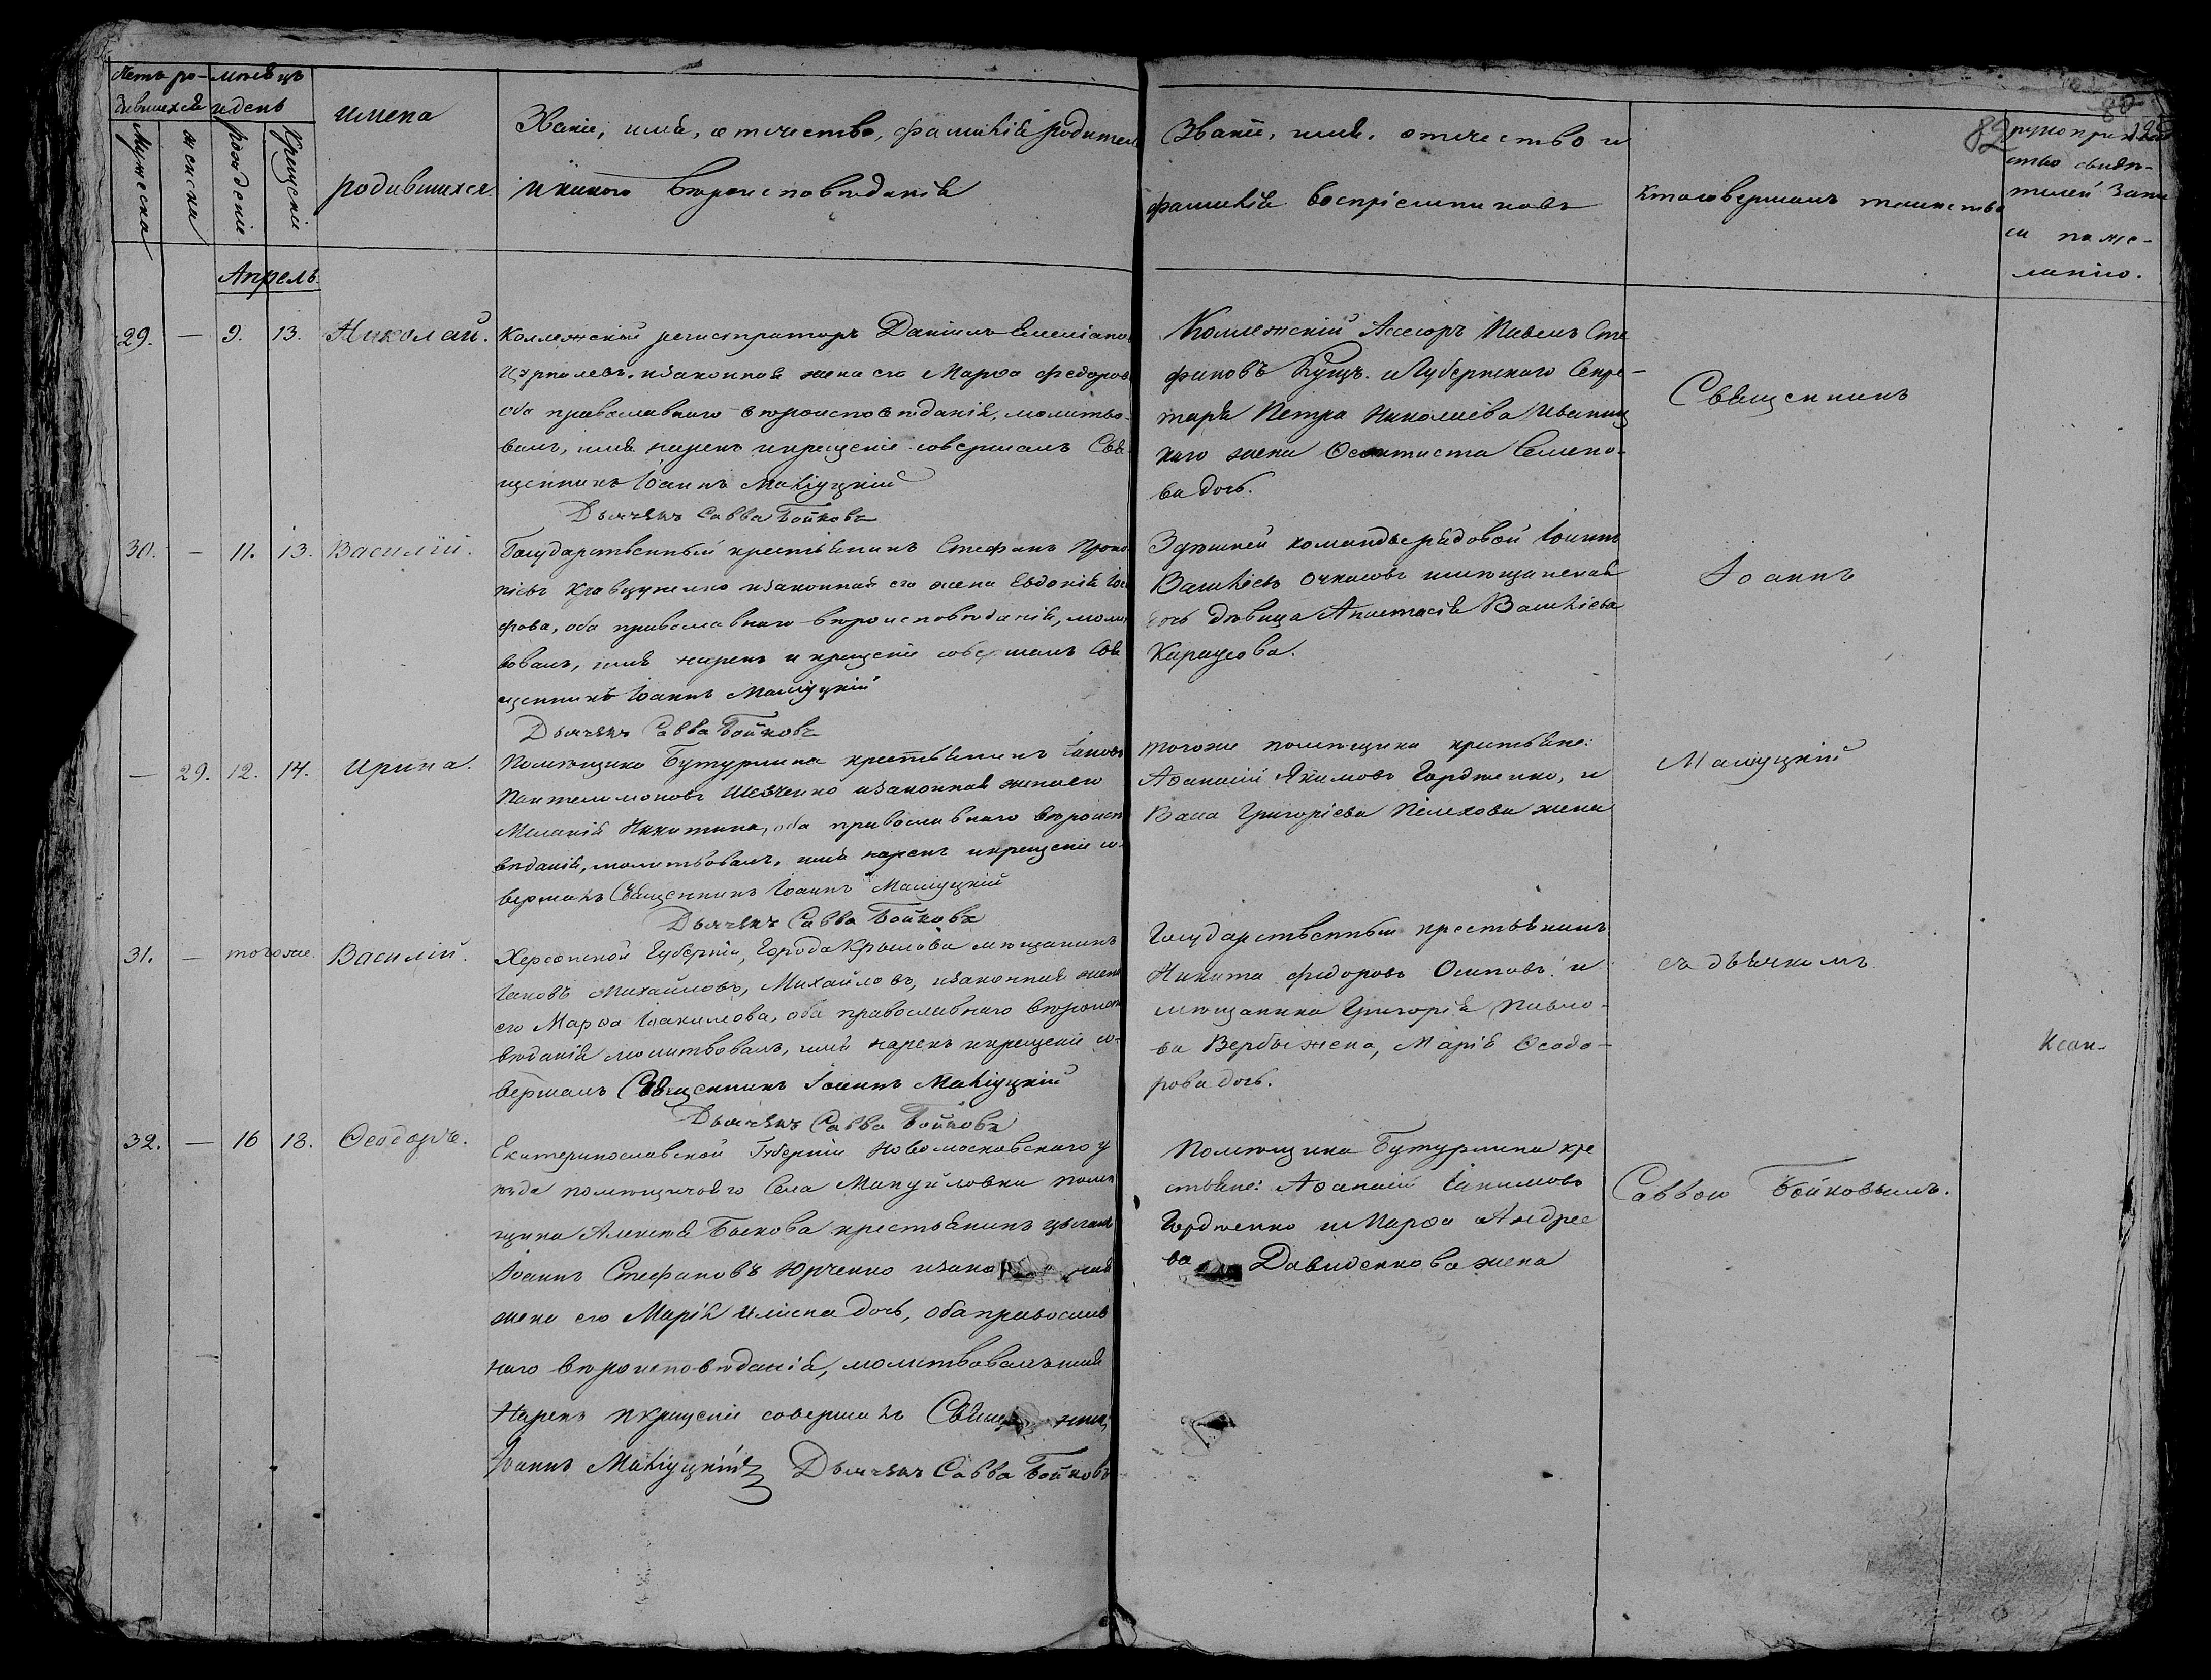 Летъ ро- мѣсяцъ
дившихся и день
Мужеска
женска
рожденіе
Крещеніе
имена
родившихся.
Званіе, имя, отчество, фамилія родител
и какого вѣроисповѣданія
Званіе, имя, отчество и
фамилія воспріемниковъ
Кто совершалъ таинство
82
80
рукоприклад
ство свидѣ-
телей запи
си по же-
ланію.
Апрель
29. — 9. 13. Николай.
Коллежскій регистраторъ Даніилъ Емеліано
и законная жена его Марѳа Федоров
оба православнаго вѣроисповѣданія, молитво-
валъ, имя нарекъ и крещеніе совершалъ Свя-
щенникъ Іоаннъ Маліуцкій
Дьячекъ Савва Бойковъ
Коллежскій Асесоръ Павелъ Сте
фановъ Кущъ. и Губернскаго Секре-
таря Петра Николаева Иваниц
каго жена Семено-
ва дочь.
Священникъ
30. — 11. 13. Василій.
Государственный крестьянинъ Стефанъ Проко
піевъ Кравцуненко и законная его жена Евдокія Іос
фова, оба православнаго вѣроисповѣданія, моли
вовалъ, имя нарекъ и крещеніе совершалъ Свя
щенникъ Іоаннъ Маліуцкій
Дьячекъ Савва Бойковъ
Здѣшней команды рядовой Іоаннъ
Василіевъ Очкасовъ и мѣщанская
дочь дѣвица Анастасія Василіева
Караусова.
Іоаннъ
— 29. 12. 14. Ирина.
Помѣщика Бутурлина крестьянинъ Іаковъ
Пантелимоновъ Шевченко и законная жена его
Меланія Никитина, оба православнаго вѣроисп
вѣданія, молитвовалъ, имя нарекъ и крещеніе со-
вершалъ Священникъ Іоаннъ Маліуцкій
Дьячекъ Савва Бойковъ
тогоже помѣщика крестьяне:
Аѳанасій Якимовъ Гордѣенко, и
Васа Григорієва Пелехова жена
Маліуцкій
31. — тогоже. Василій.
Херсонской Губерніи, Города Крылова мѣщанинъ
Іаковъ Михайловъ, Михайловъ, и законная жена
его Марѳа Іоакимова, оба православнаго вѣроисп
вѣданія молитвовалъ, имя нарекъ и крещеніе со-
вершалъ Священникъ Іоаннъ Маліуцкій
Дьячекъ Савва Бойковъ
Государственный крестьянинъ
Никита Федоровъ Осиповъ и
мѣщанина Григорія Павло-
ва Вербы жена, Марія Ѳеодо-
рова дочь.
съ дьячкомъ
32. — 16 18. Ѳеодоръ.
Екатеринославской Губерніи Новомосковскаго у
ѣзда помѣщичьяго Села Мануйловки помѣ
щика Алексѣя Быкова крестьянинъ цыганъ
Іоаннъ Стефановъ Юрченко и зако ная
жена его Марія Иліина дочь, оба православ
наго вѣроисповѣданія, молитвовалъ имя
Нарекъ и крещеніе совершалъ Свящ нникъ
Іоаннъ Маліуцкій Дьячекъ Савва Бойковъ
Помѣщика Бутурлина кре
стьяне: Аѳанасій Іакимовъ
Гордѣенко и Марѳа Андрее
ва Давиденкова жена
Саввою Бойковымъ.